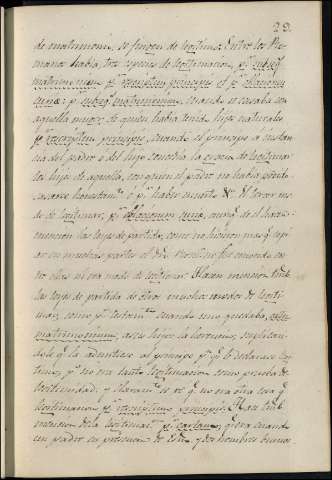 29.
de matrimonio, se fingen de legitimo. Entre los Ro-
manos habia tres especies de legitimacion, pr. subseq.
matrimonium pr. rescriptum principis et pr. oblationem
curiæ: pr. subseq. matrimonium, cuando se casaba con
aquella muger de quien habia tenido hijos naturales
pr. rescriptum principis, cuando el principe a instan-
cia del padre o del hijo concedia la gracia de legitimar
los hijos de aquella, con quien el padre no habia podido
casarse honestamte. o pr. haber muerto &c. El tercer mo-
do de legitimar, pr. oblationem curiæ, aunq. de el hacen
mencion las leyes de partida, como no hicieron mas q. copi-
ar en muchas partes el dro. Romano fue omitida en-
tre ellos ni era modo de legitimar. Hacen mencion tambn.
las leyes de partida de otros muchos modos de legiti-
mar, como pr. testamto. cuando uno quedaba,
matrimonium, a sus hijos la herencia, suplican-
dole q. la admitiese al principe pa. q. lo declarase legi-
timo, pr. no era tanto legitimacion como prueba de
legitimidad: y claramte. se ve q. no era otra cosa q.
legitimacion pr. rescriptum principis. Hace tambn.
mencion de la legitimacn. pr. cartam, q. era cuando
un padre en presencia de Esno. y dos hombres buenos